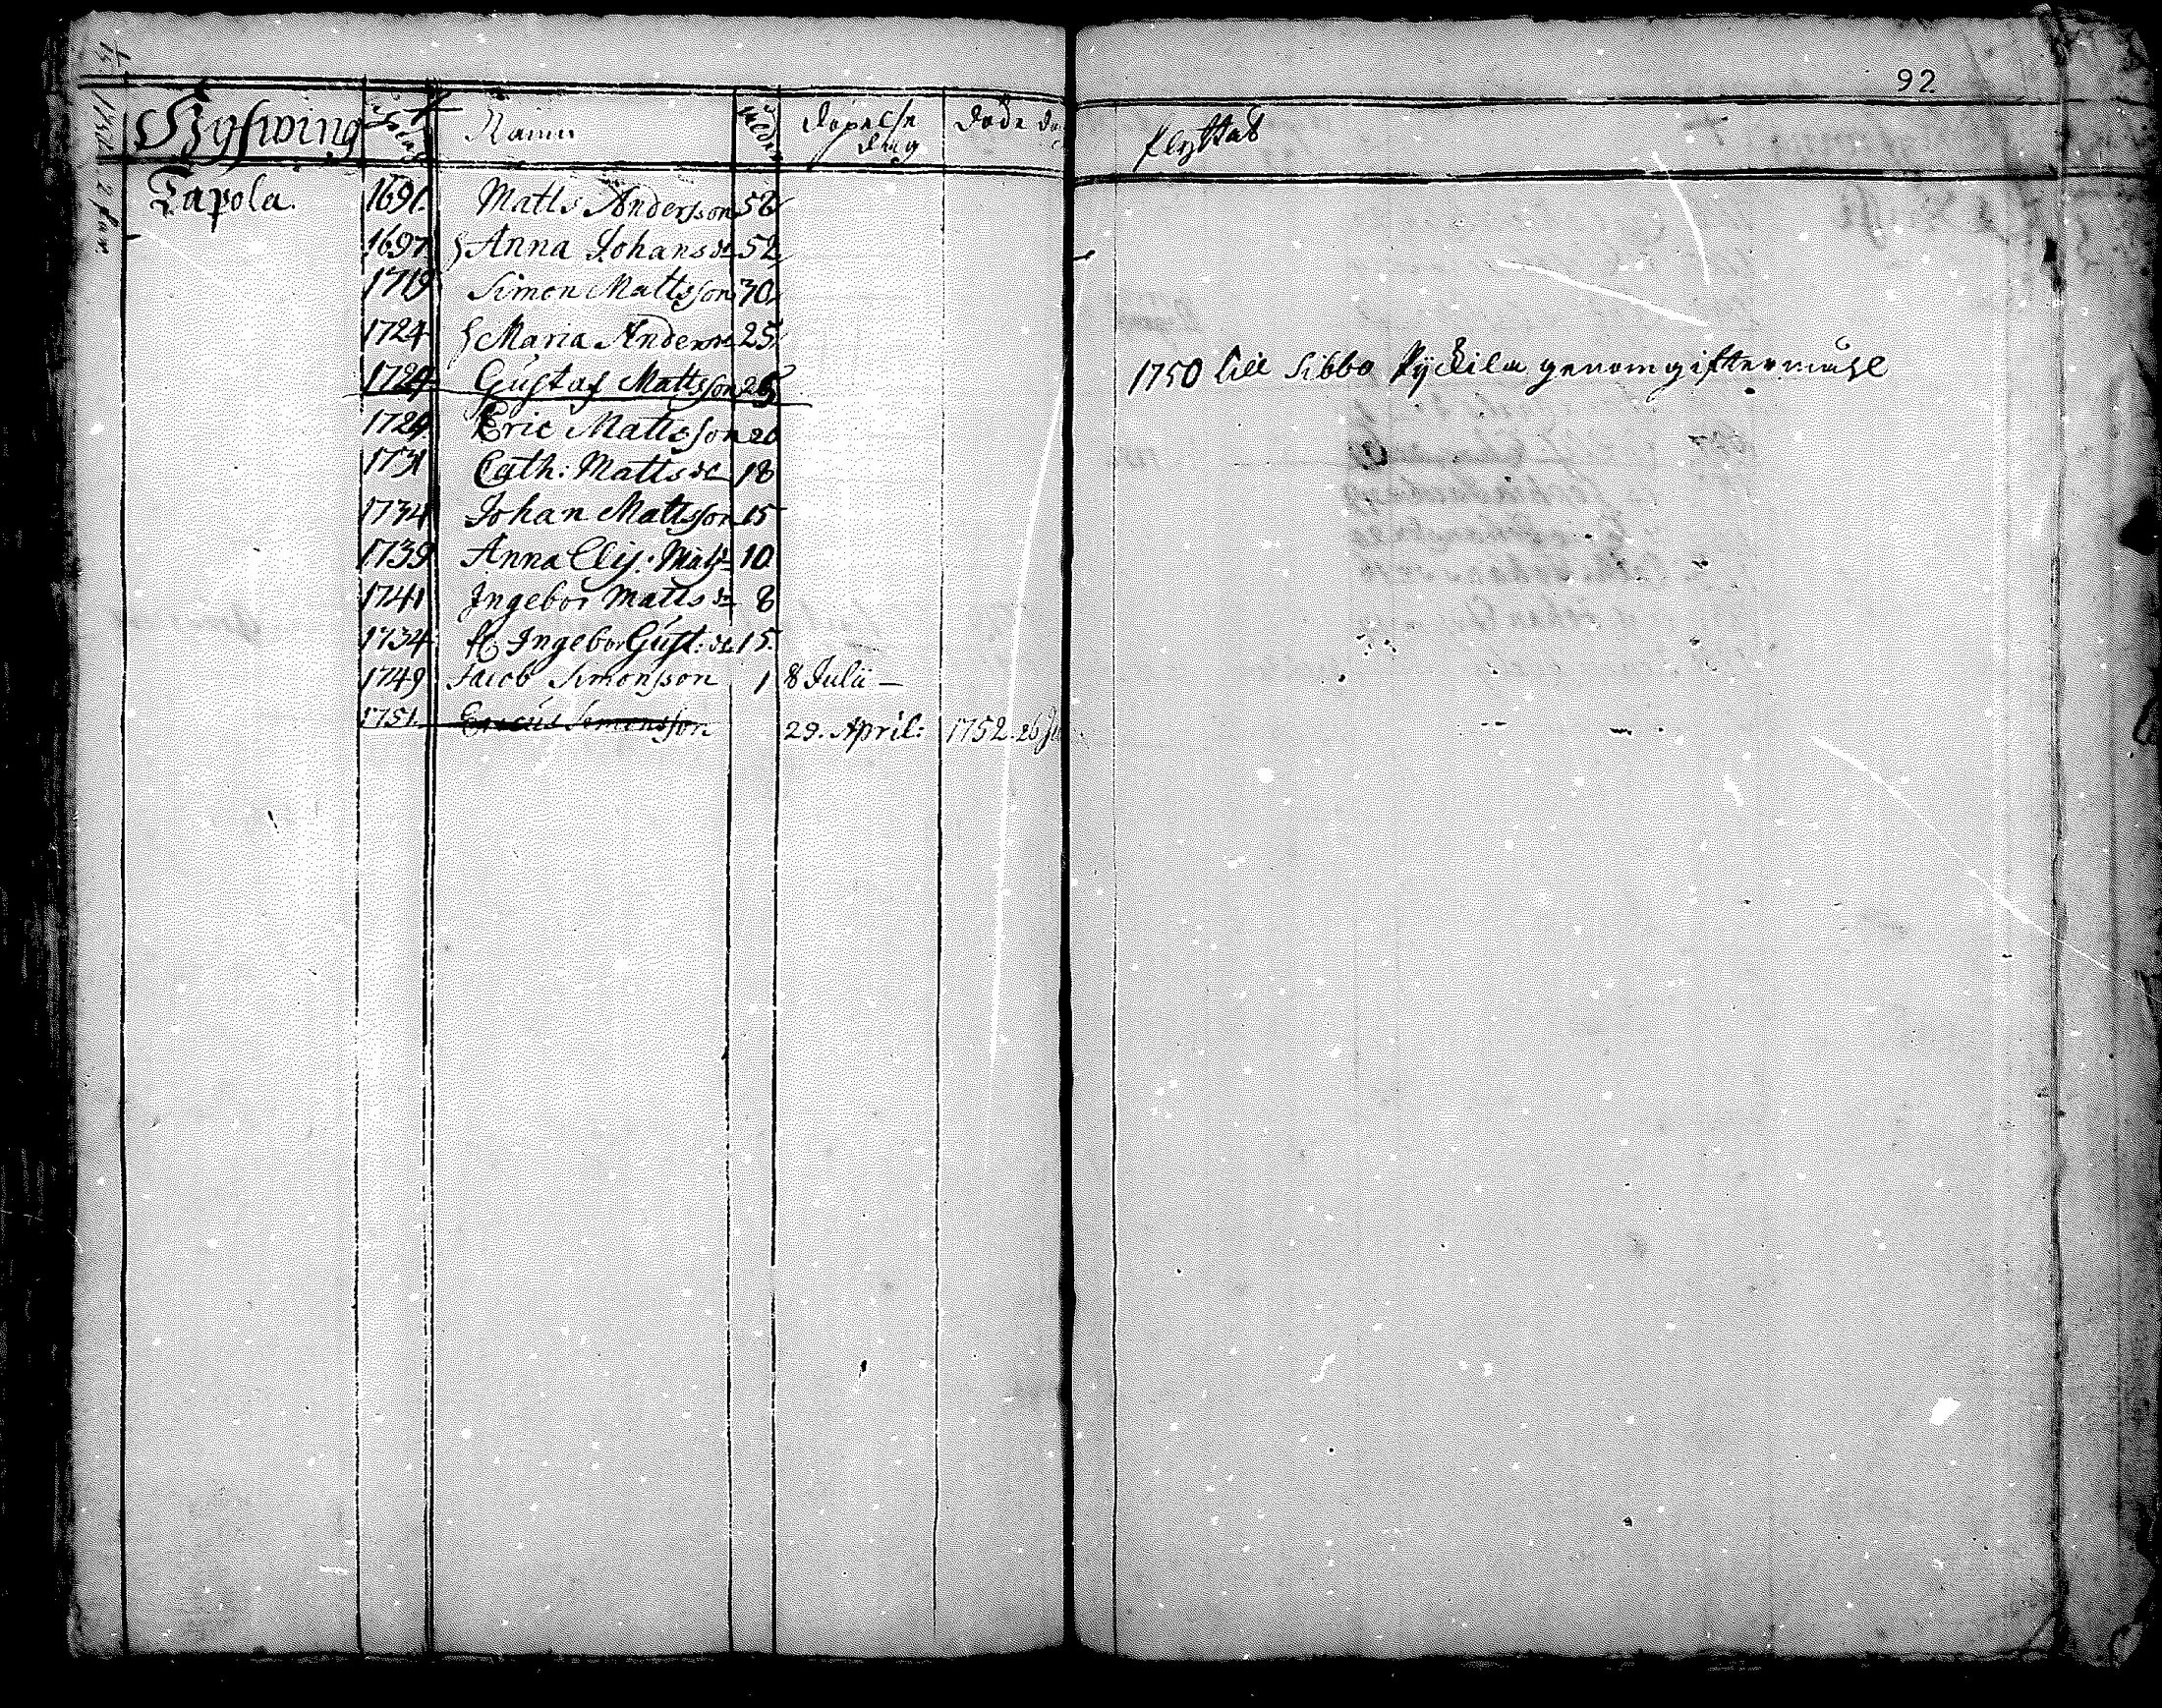 92
Hyfwing Namn Döpelse dag Döde da flyttat
Tapola. 1691. Matts Andersson 58
1697 Anna Johansdr 52
1719 Simon Mattsson 30
1724 Maria Andersdr 25
Gustaf Mattsson 1750 till Sibbo genom giftermåhl
1729 Eric Mattsson 20
1731 Cath: Mattsdr 18
1734 Johan Mattsson 15
1739 Anna Elis: Matsdr 10
1741 Ingebor Mattsdr 8
1734 Ingebor Gust:dr 15
1749 Jacob Simonsson 1 8 Julii —
1751. Ericus Simonsson 29. April: 1752. 26 Ju